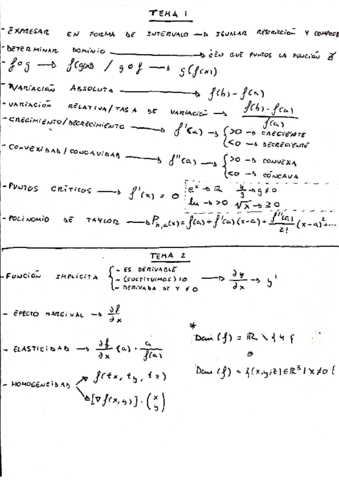 TEMA 1
- EXPRESAR EN FORMA DE INTERVALO → IGUALAR RESTRICCIÓN Y
- DETERMINAR DOMINIO → ¿EN QUE PUNTOS LA FUNCIÓN
- f∘g → f(g(x)) / g∘f → g(f(x))
- VARIACIÓN ABSOLUTA → f(b) - f(a)
- VARIACIÓN RELATIVA/TASA DE VARIACIÓN → f(b) - f(a) / f(a)
- CRECIMIENTO/DECRECIMIENTO → f'(a) → { >0 → CRECIENTE
<0 → DECRECIENTE
- CONVEXIDAD/CONCAVIDAD → f''(a) → { >0 → CONVEXA
<0 → CÓNCAVA
- PUNTOS CRÍTICOS → f'(x) = 0
eˣ → ℝ x/y → y≠0
ln → >0 √x → ≥0
- POLINOMIO DE TAYLOR → Pn,a(x) = f(a) + f'(a)(x-a) + f''(a)/2! (x-a)² ...
TEMA 2
- FUNCIÓN IMPLÍCITA { - ES DERIVABLE
- (SUSTITUIMOS) = 0
- DERIVADA DE Y ≠ 0
→ ∂y/∂x → y'
- EFECTO MARGINAL → ∂f/∂x
- ELASTICIDAD → ∂f/∂x (a) · a/f(a)
* Dom (f) = ℝ \ {4}
o
Dom (f) = {(x,y,z) ∈ ℝ³ / x ≠ 0}
- HOMOGENEIDAD → f(tx, ty, tz)
→ [∇f(x,y)] · (x y)